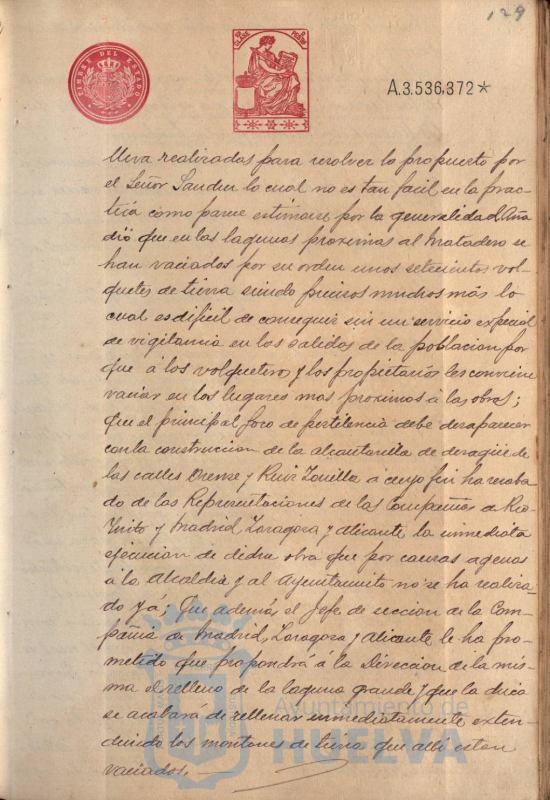 129
TIMBRE DEL ESTADO
A.3.536.372*
lleva realizadas para resolver lo propuesto por
el Señor Sanden lo cual no es tan facil en la prac-
tica como parece estimarse por la generalidad. Aña
dió que en las lagunas proximas al Matadero se
han vaciados por su orden unos setecientos vol-
quetes de tierra siendo precisos muchos más lo
cual es dificil de conseguir sin un servicio expecial
de vigilancia en las salidas de la poblacion por
que á los volqueteros y los propietarios les conviene
vaciar en los lugares mas proximos á las obras;
Que el principal foco de pestilencia debe desaparecer
con la construccion de la alcantarilla de desagüe de
las calles Orense y Ruiz Zorrilla á cuyo fin ha recaba
do de las Representaciones de las Compañias de Rio-
Tinto y Madrid, Zaragoza y Alicante la inmediata
ejecucion de dicha obra que por causas agenas
á la Alcaldia y al Ayuntamiento no se ha realiza-
do yá; Que además el Jefe de seccion de la Com-
pañia de Madrid, Zaragoza y Alicante le ha pro-
metido que propondrá á la Direccion de la mis-
ma el relleno de la laguna grande y que la chica
se acabará de rellenar inmediatamente exten-
diendo los montones de tierra que alli estan
vaciados.
Ayuntamiento de
HUELVA